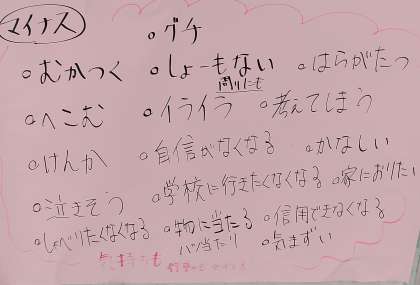 マイナス
・グチ
・むかつく
・しょーもない
・はらがたつ
周りにも
・へこむ
・イライラ
・考えてしまう
・けんか
・自信がなくなる
・かなしい
・泣きそう
・学校に行きたくなくなる
・家におりたい
・しゃべりたくなくなる
・物に当たる
・信用できなくなる
八つ当たり
・気まずい
気持ちも